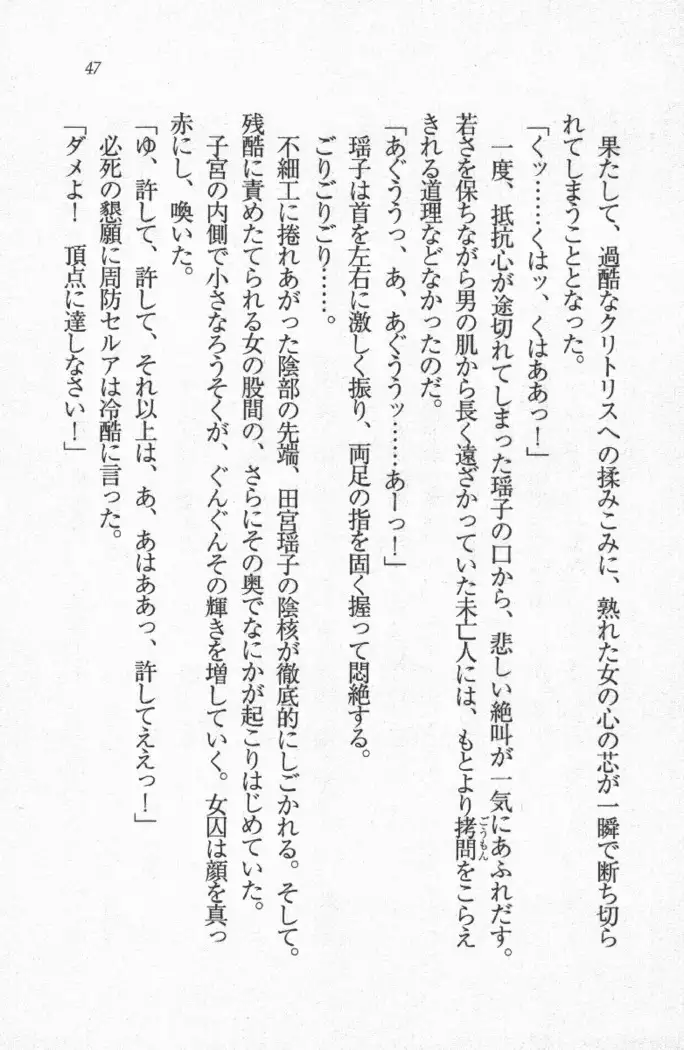 47
果たして、過酷なクリトリスへの揉みこみに、熟れた女の心の芯が一瞬で断ち切ら
れてしまうこととなった。
「くッ……くはッ、くはああっ！」
一度、抵抗心が途切れてしまった瑶子の口から、悲しい絶叫が一気にあふれだす。
若さを保ちながら男の肌から長く遠ざかっていた未亡人には、もとより拷問をこらえ
ごうもん
きれる道理などなかったのだ。
「あぐううっ、あ、あぐううッ……あーっ！」
瑶子は首を左右に激しく振り、両足の指を固く握って悶絶する。
ごりごりごり……。
不細工に捲れあがった陰部の先端、田宮瑶子の陰核が徹底的にしごかれる。そして。
残酷に責めたてられる女の股間の、さらにその奥でなにかが起こりはじめていた。
子宮の内側で小さなろうそくが、ぐんぐんその輝きを増していく。女囚は顔を真っ
赤にし、喚いた。
「ゆ、許して、許して、それ以上は、あ、あはああっ、許してええっ！」
必死の懇願に周防セルアは冷酷に言った。
「ダメよ！　頂点に達しなさい！」